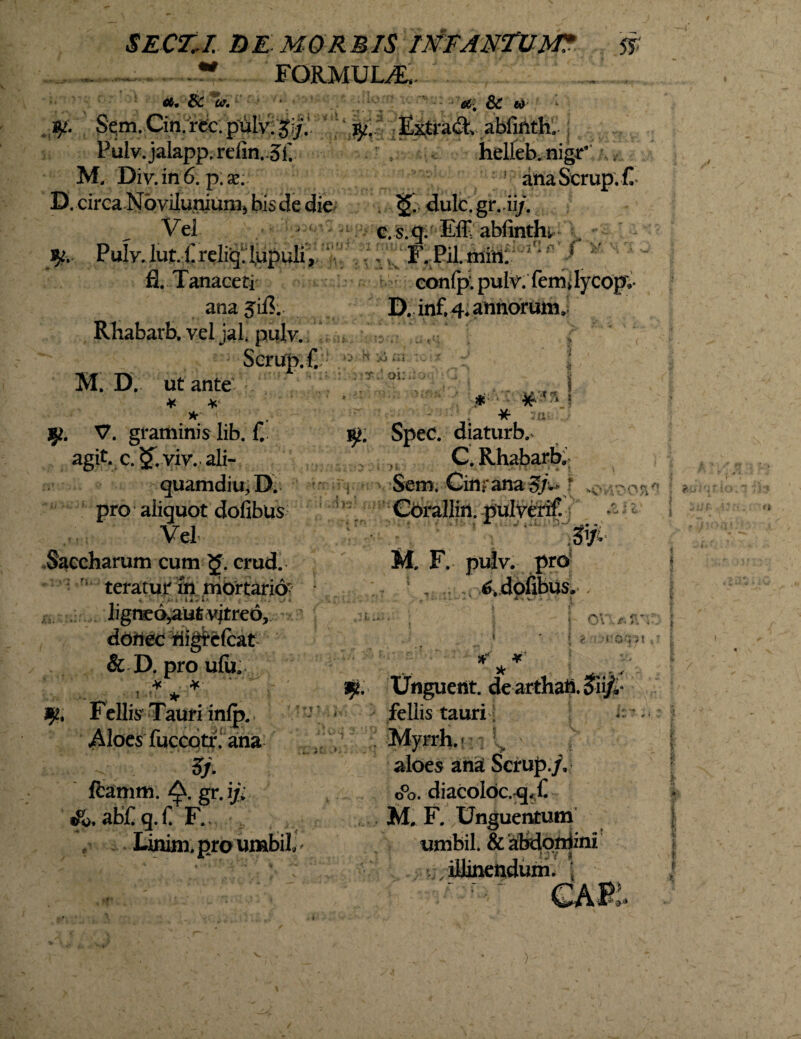 SECT. I. DE MORBIS INFANTUM. 55
FORMULÆ.
α. & ω.
℞. Sem. Cin. rec. pulv. ʒij.
Pulv. jalapp. resin. ʒſ.
M. Div. in 6. p. æ.
D. circa Novilunium, bis de die
Vel
℞. Pulv. lut. ſ. reliq. lupuli,
fl. Tanaceti
ana ʒiß.
Rhabarb. vel jal. pulv.
Scrup. ſ.
M. D. ut ante
* *
*
℞. ∇. graminis lib. ſ.
agit. c. ☿. viv. ali-
quamdiu, D.
pro aliquot doſibus
Vel
Saccharum cum ☿. crud.
teratur in mortario
ligneo, aut vitreo,
donec nigreſcat
& D. pro uſu.
* *
*
℞. Fellis Tauri inſp.
Aloes ſuccotr. ana
ʒj.
ſcamm. 🜍. gr. ij.
o̊o. abſ. q. ſ. F.
Linim. pro umbil.
α. & ω
℞. Extract. abſinth.
helleb. nigr.
ana Scrup. ſ.
☿. dulc. gr. iij.
c. s. q. Eſſ. abſinth.
F. Pil. min.
conſp. pulv. ſem. lycop.
D. inf. 4. annorum.
* *
*
℞. Spec. diaturb.
C. Rhabarb.
Sem. Cin. ana ʒj.
Corallin. pulveriſ.
ʒij.
M. F. pulv. pro
6. doſibus.
* *
*
℞. Unguent. de arthan. ʒiij.
fellis tauri
Myrrh.
aloes ana Scrup. j.
o̊o. diacoloc. q. ſ.
M. F. Unguentum
umbil. & abdomini
illinendum.
CAP.